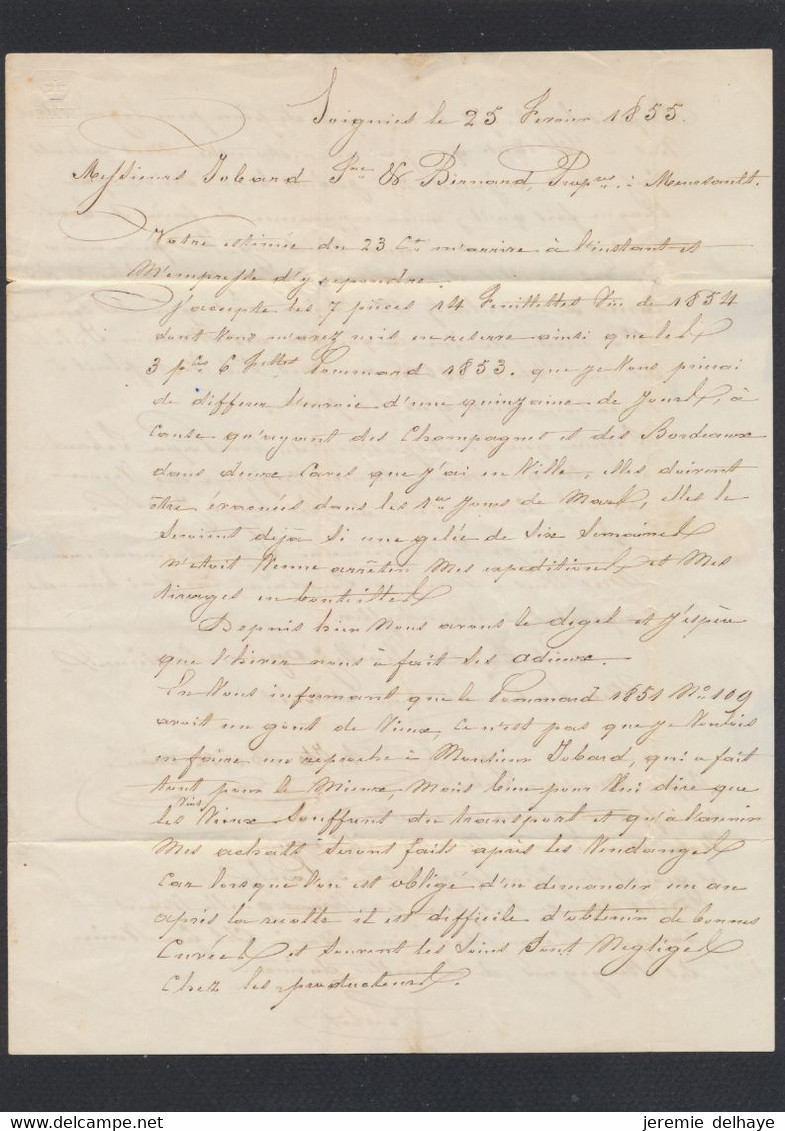 Soignies le 25 Fevrier 1855.
Messieurs Jobard Jne & Bernard, Propres à Meursault.
Votre estimée du 23 Ct m'arrive à l'instant et
M'empresse d'y repondre.
J'accepte les 7 pièces 14 Feuillettes Vin de 1854
dont Vous m'avez mis en reserve ainsi que les
3 pces 6 fllettes Pommard 1853. que je Vous prierai
de differer l'envoie d'une quinzaine de Jours, à
cause qu'ayant des Champagnes et des Bordeaux
dans deux Caves que j'ai en Ville, elles doivent
être évacuées dans les 1ers Jours de Mars, elles le
seroient dejà si une gelée de Six Semaines
n'etoit Venue arrêter Mes expeditions et Mes
tirages en bouteilles
Depuis hier Nous avons le degel et j'espère
que l'hiver nous à fait ses adieux.
En Vous informant que le Pommard 1851 No 109
avoit un gout de Vieux, ce n'est pas que je Voulois
en faire un reproche à Monsieur Jobard, qui a fait
tout pour le Mieux, Mais bien pour lui dire que
les Vins Vieux Souffrent du transport et qu'à l'avenir
Mes achats seront faits après les Vendanges
Car lorsque l'on est obligé d'en demander un an
après la recolte il est difficile d'obtenir de bonnes
Cuvées et souvent les Soins Sont Negligés
Chez les producteurs.
jeremie delhaye